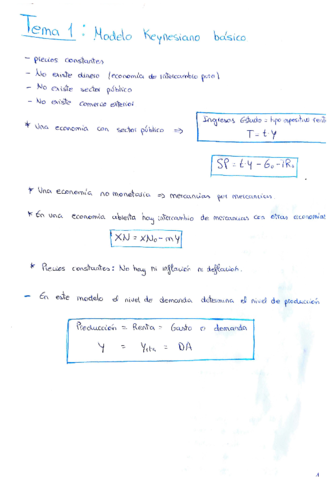 Tema 1: Modelo Keynesiano básico
- precios constantes
- No existe dinero (economía de intercambio puro)
- No existe sector público
- No existe comercio exterior
* Una economía con sector público ⇒
Ingresos Estado = tipo impositivo
T = t·Y
SP = t·Y - G₀ - iR₀
* Una economía no monetaria ⇒ mercancías por mercancías.
* En una economía abierta hay intercambio de mercancías con otras economías
XN = XN₀ - mY
* Precios constantes: No hay ni inflación ni deflación.
- En este modelo el nivel de demanda determina el nivel de producción
Producción = Renta = Gasto o demanda
Y = = DA
1